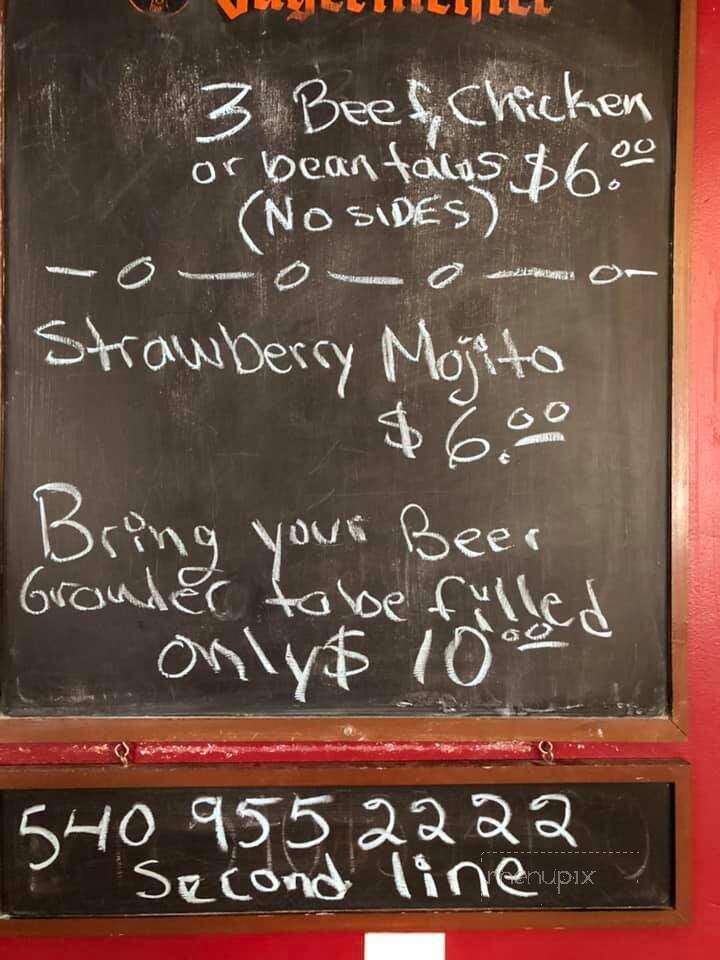 Jägermeister
3 Beef, Chicken
or bean tacos $6.00
(NO SIDES)
Strawberry Mojito
$6.00
Bring your Beer
Growler to be filled
only $10.00
540 955 2222
Second line
menupix